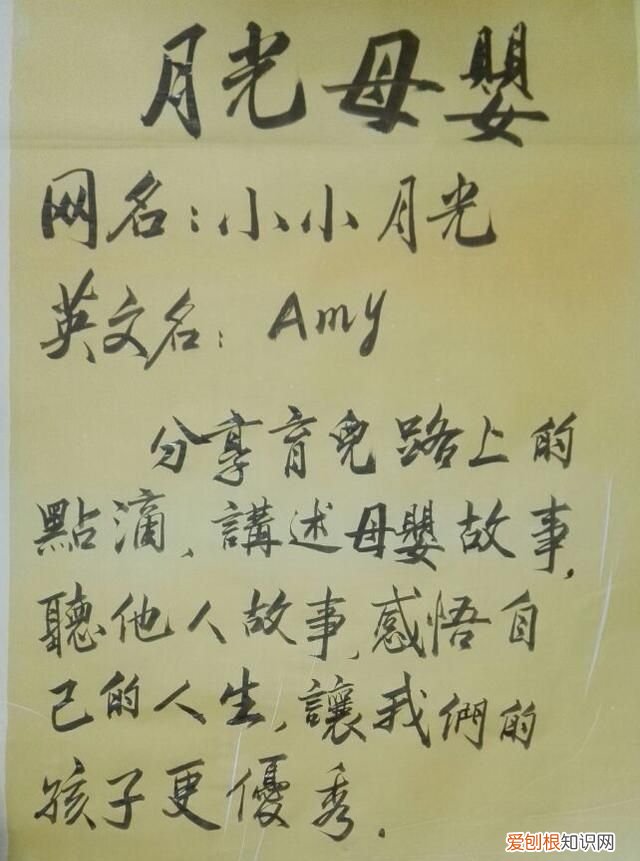 月光母嬰
网名:小小月光
英文名:Amy
分享育兒路上的
點滴、講述母嬰故事,
聽他人故事,感悟自
己的人生,讓我們的
孩子更優秀.
爱刨根知识网